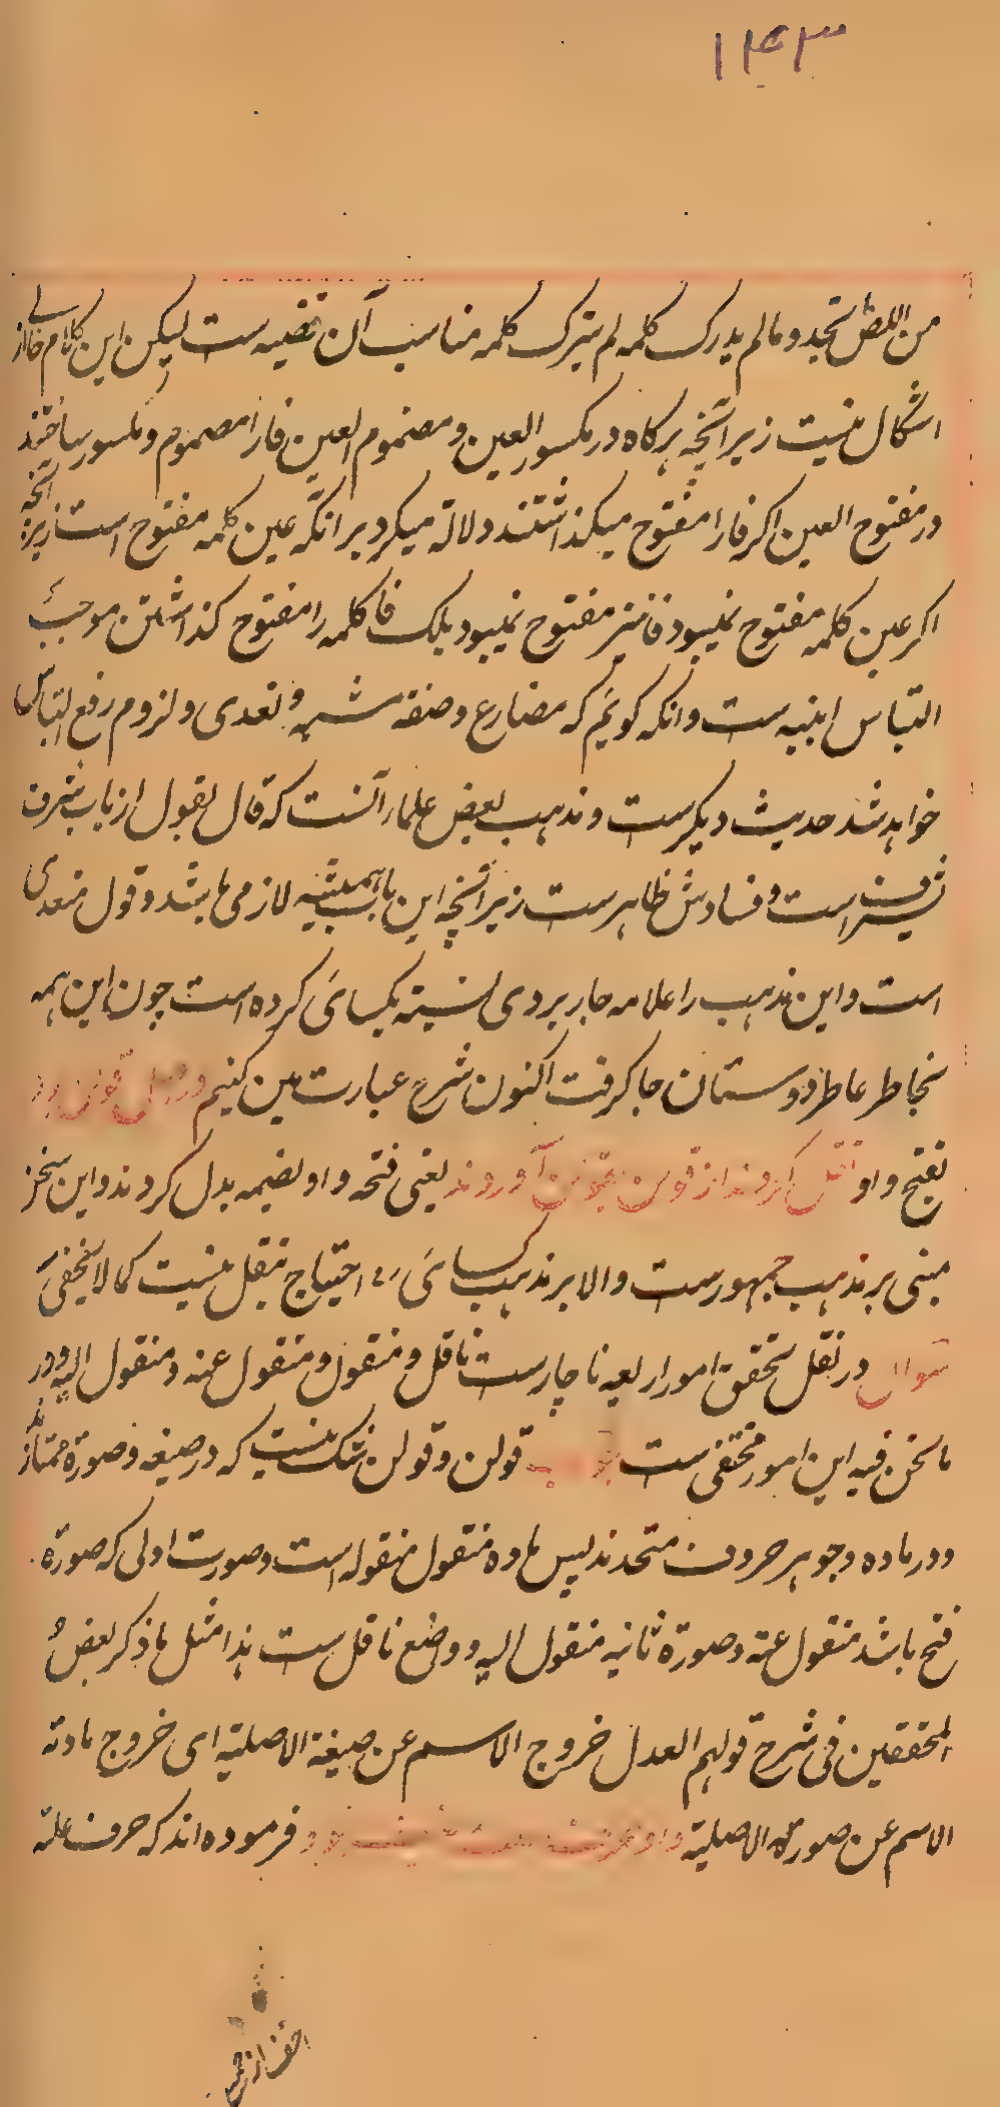 ۱۴۳
من اللص تجد و مالم یدرک کلمه لم یترک کلمه مناسب آن قضیه ست لیکن این کلام خالی از
اشکال نیست زیرانچه هرکاه در مکسور العین و مضموم العین فا را مضموم و مکسور ساختند
در مفتوح العین اکر فا را مفتوح میکذاشتند دلالة میکرد بر انکه عین کلمه مفتوح است زیرانچه
اکر عین کلمه مفتوح نمیبود فا نیز مفتوح نمیبود بلکه فا کلمه را مفتوح کذاشتن موجب
التباس ابنیه ست و انکه کویم که مضارع و صفة مشبه و تعدی و لزوم رفع التباس
خواهد شد حدیث دیکرست و مذهب بعض علما آنست که قال یقول از باب شرف
یشرف است و فسادش ظاهرست زیرانچه این باب همیشه لازمی باشد و قول متعدی
است و این مذهب را علامه جاربردی نسبة بکسائی کرده است چون این همه
بخاطر عاطر دوستان جا کرفت اکنون شرح عبارت متن کنیم و
بفتح واو نقل کردند از قولن بقولن آوردند یعنی فتحه واو بضمه بدل کردند و این سخن
مبنی بر مذهب جمهورست و الا بر مذهب کسائی احتیاج بنقل نیست کما لا یخفی
سوال در نقل تحقق امور اربعه ناچارست ناقل و منقول و منقول عنه و منقول الیه و در
ما نحن فیه این امور مختفی ست قولن و قولن شک نیست که در صیغه و صورة ممتازند
و در ماده و جوهر حروف متحدند پس ماده منقول منقوله است و صورت اولی که صورة
فتح باشد منقول عنه و صورة ثانیه منقول الیه و وضع ناقل ست هذا مثل ما ذکر بعض
المحققین فی شرح قولهم العدل خروج الاسم عن صیغة الاصلیة ای خروج مادة
الاسم عن صورة الاصلیة و فرموده اند که حرف علة